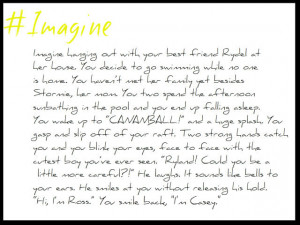 #Imagine
Imagine hanging out with your best friend Rydel at
her house. You decide to go swimming while no one
is home. You haven't met her family yet besides
Stormie, her mom. You two spend the afternoon
sunbathing in the pool and you end up falling asleep.
You wake up to "CANANBALL!" and a huge splash. You
gasp and slip off of your raft. Two strong hands catch
you and you blink your eyes, face to face with the
cutest boy you've ever seen. "Ryland! Could you be a
little more careful?!" He laughs. It sounds like bells to
your ears. He smiles at you without releasing his hold.
"Hi, I'm Ross." You smile back, "I'm Casey."